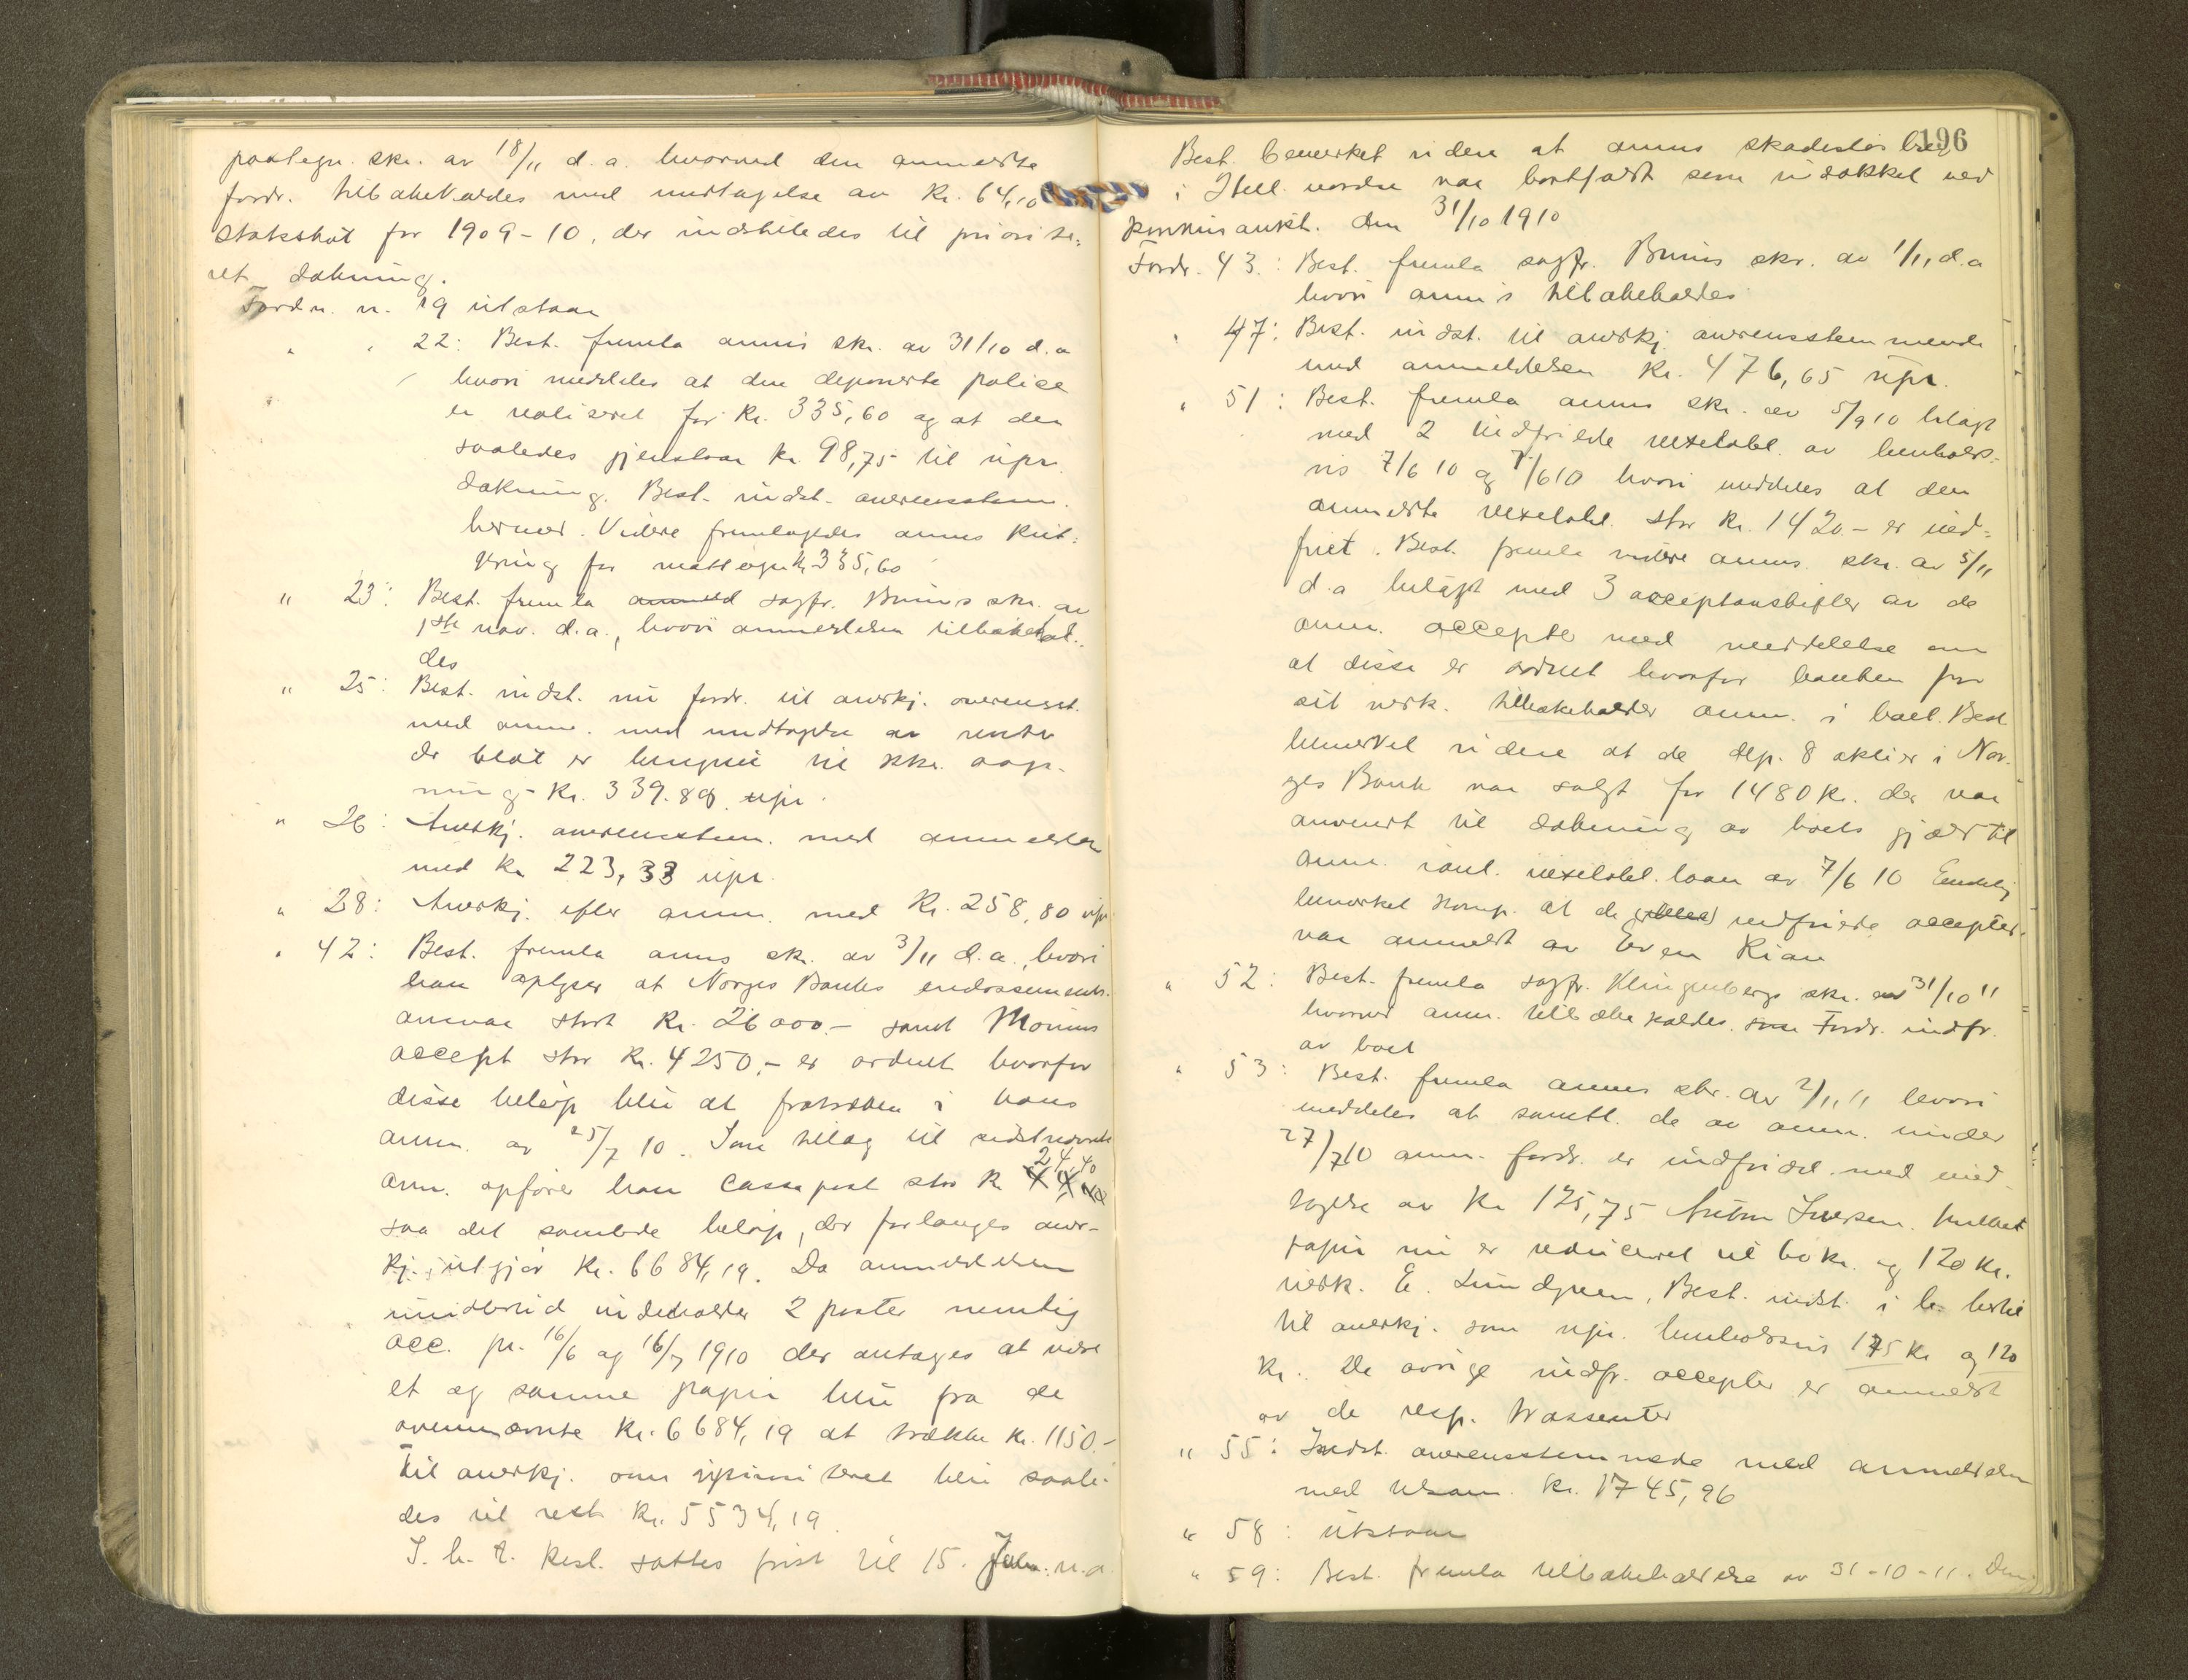 paategn. skr. av 18/11 d.a. hvorved den anmeldte
fordr. tilbakekaldes med undtagelse av Kr. 64,10
statsskat for 1909-10, der indstilledes til priorite-
ret dækning.
Fordr. n. 19 utstaar
" " 22: Best. fremla anm's skr. av 31/10 d.a
hvori meddeles at den deponerte police
er realiseret for Kr. 335,60 og at der
saaledes gjenstaar Kr. 98,75 til upr.
dækning. Best. indst. overensstem.
herved. Videre fremlagdes anms kvit-
tering for mottagne Kr. 335,60
" 23: Best. fremla sagfr. Bruns skr. av
1ste nov. d.a., hvori anmeldelsen tilbakekal-
des
" 25: Best. indst. nu fordr. til anerkj. overensst.
med anm. med undtagelse av renter
der blot er beregnet til skr. aap-
ning - Kr. 339.89 upr.
" 26: Anerkj. overensstem. med anmeldelsen
med Kr 223,33 upr.
" 28: Anerkj. efter anm. med Kr. 258,80 upr
" 42: Best. fremla anms skr. av 3/11 d.a., hvori
han oplyser at Norges Banks endossements-
ansvar stort Kr. 26000.- samt
accept stor Kr. 4250,- er ordnet hvorfor
disse beløp blir at fratrække i hans
anm. av 25/7 10. Som tillæg til sidstnævnte
anm. opfører han Cassapost stor Kr 24,40
saa det samlede beløp, der forlanges aner-
kj. utgjør Kr. 6684,19. Da anmeldelsen
imidlertid indeholder 2 poster nemlig
acc. pr. 16/6 og 16/7 1910 der antages at være
et og samme papir blir fra de
ovennævnte Kr. 6684,19 at trække Kr. 1150.-
Til anerkj. som uprioriteret blir saale-
des til rest Kr. 5534,19.
I h. t. Kksl. sattes frist til 15. n.a.
196
Best. bemerket videre at anms skadesløs brev
i vordre var bortfaldt som udækket ved
aukt. den 31/10 1910
Fordr. 43: Best. fremla sagfr. Bruns skr. av 1/11 d.a
hvori anm's tilbakekaldes
" 47: Best. indst. til anerkj. overensstemmende
med anmeldelsen Kr. 476,65 upr.
" 51: Best. fremla anms skr. av 5/9 10 bilagt
med 2 indfriede vexelobl. av henholds-
vis 7/6 10 og 7/6 10 hvori meddeles at den
anmeldte vexelobl. stor Kr. 1420.- er ind-
friet. Best. fremla videre anms. skr. av 5/11
d.a bilagt med 3 acceptansbifler av de
anm. accepter med meddelelse om
at disse er ordnet hvorfor banken for
sit verk. tilbakekalder anm. i boet. Best
bemerket videre at de dep. 8 aktier i Nor-
ges Bank var solgt for 1480 Kr. der var
anvendt til dækning av boets gjæld til
anm. vexelobl. laan av 7/6 10 Endelig
bemerket Komp. at de indfriede accepter
var anmeldt av Even Rian
" 52: Best. fremla sagfr. Klingenbergs skr. av 31/10 11
hvorved anm. tilbakekaldes. Fordr. indfr.
av boet
" 53: Best. fremla anms skr. av 2/11 11 hvori
meddeles at samtl. de av anm. under
27/7 10 anm. fordr. er indfridd med und-
tagelse av Kr 125,75 Anton Iversen. hvilket
papir nu er reduceret til 60 Kr. og 120 Kr.
verk. E. Lundgreen, Best. indst. i h. hertil
til anerkj. som upr. henholdsvis 175 Kr og 120
Kr. De øvrige indfr. accepter er anmeldt
av de resp. Trassenter
" 55: Indst. overensstemmende med anmeldelsen
med tilsam. Kr. 1745,96
" 58: utstaar
" 59: Best. fremla tilbakekaldelse av 31-10-11. Den